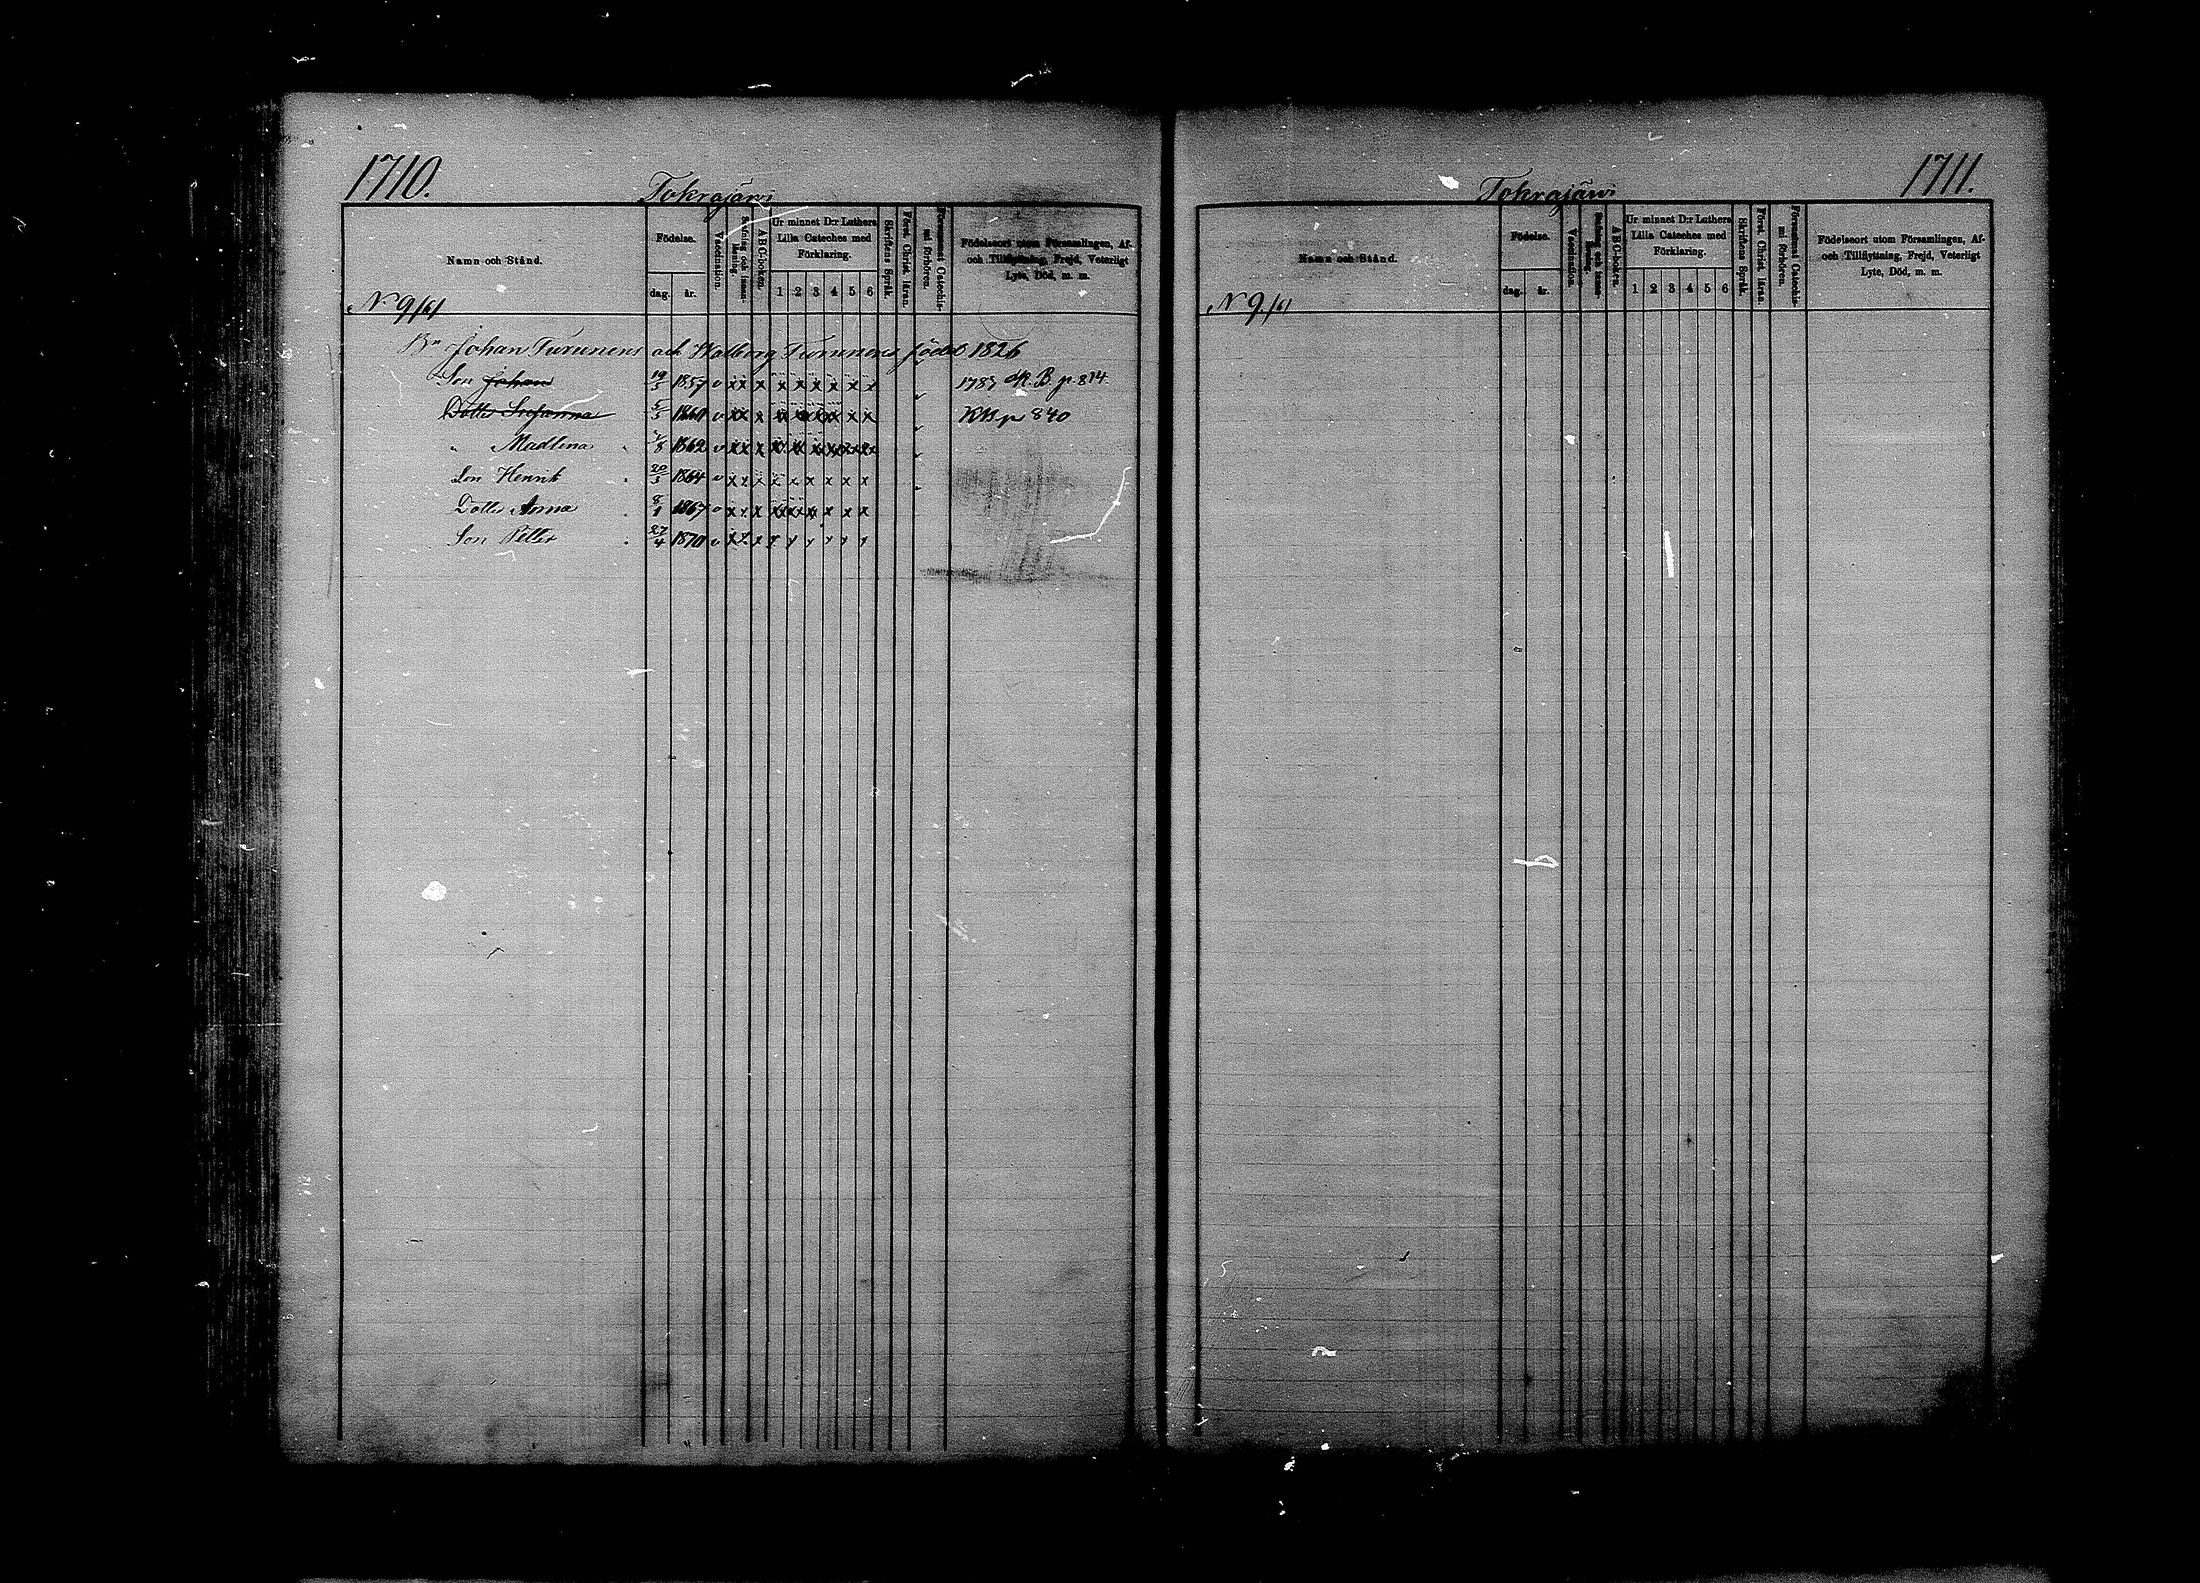 1710.
Tokrajärvi
Namn och Stånd.
Födelse.
dag. år.
Vaccination.
Stafning och innan-läsning.
ABC-boken.
Ur minnet D:r Luthers Lilla Cateches med Förklaring.
1 2 3 4 5 6
Skriftens Språk.
Först. Christ. läran.
Försummat Catechis-mi förhören.
Födelseort utom Församlingen, Af- och Tillflyttning, Frejd, Veterligt Lyte, Död, m. m.
N 9 /6/
Bn Johan Turunens och Walborg Turunens född 1826
Son Johan 19/5 1857 v xx x x x x x x x 1783 K.B. p. 814.
Dotter Susanna 5/5 1860 v xx x x x x x x x KB p 840
" Madlena /8 1862 v xx x x x x x x x
Son Henrik 20/5 1864 v x x x x x x x x x
Dotter Anna 8/1 1867 v x x x x x x x x x
Son Petter 27/4 1870 v x x x x x x x x x
1711.
Tokrajärvi
Namn och Stånd.
Födelse.
dag. år.
Vaccination.
Stafning och innan-läsning.
ABC-boken.
Ur minnet D:r Luthers Lilla Cateches med Förklaring.
1 2 3 4 5 6
Skriftens Språk.
Först. Christ. läran.
Försummat Catechis-mi förhören.
Födelseort utom Församlingen, Af- och Tillflyttning, Frejd, Veterligt Lyte, Död, m. m.
N 9. /6/